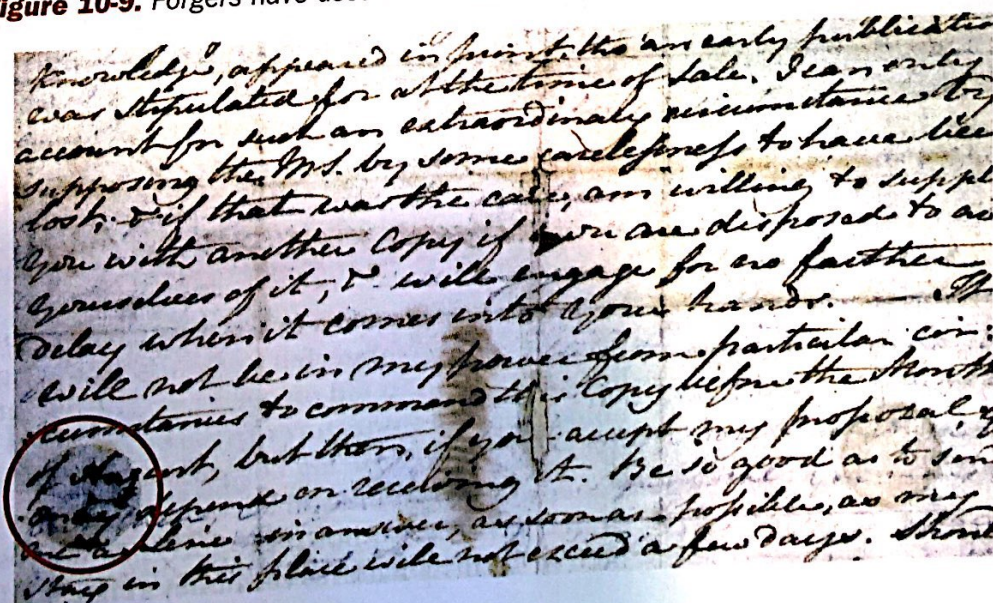 Figure 10-9. Forgers have
knowledge, appeared in print, tho' an early publicatio
was stipulated for at the time of Sale. I can only
account for such an extraordinary circumstance by
supposing the MS. by some carelessness to have bee
lost; & if that was the case, am willing to suppl
you with another Copy if you are disposed to av
yourselves of it, & will engage for no farther
delay when it comes into your hands. — It
will not be in my power from particular cir:
:cumstances to command this Copy before the Month
of August, but then, if you accept my proposal, y
may depend on receiving it. Be so good as to sen
me a Line in answer, as soon as possible, as my
stay in this place will not exceed a few days. Shoul